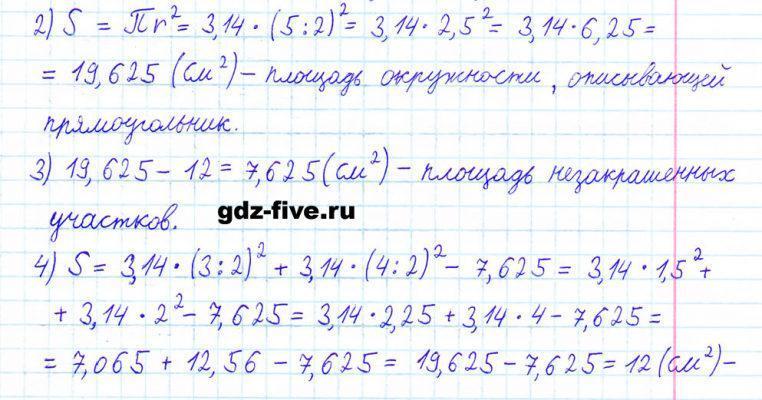 2) S = Пr² = 3,14 · (5:2)² = 3,14 · 2,5² = 3,14·6,25 =
= 19,625 (см²) – площадь окружности, описывающей
прямоугольник.
3) 19,625 – 12 = 7,625 (см²) – площадь незакрашенных
участков.
gdz-five.ru
4) S = 3,14 · (3:2)² + 3,14 · (4:2)² – 7,625 = 3,14 · 1,5² +
+ 3,14 · 2² – 7,625 = 3,14 · 2,25 + 3,14 · 4 – 7,625 =
= 7,065 + 12,56 – 7,625 = 19,625 – 7,625 = 12 (см²) –